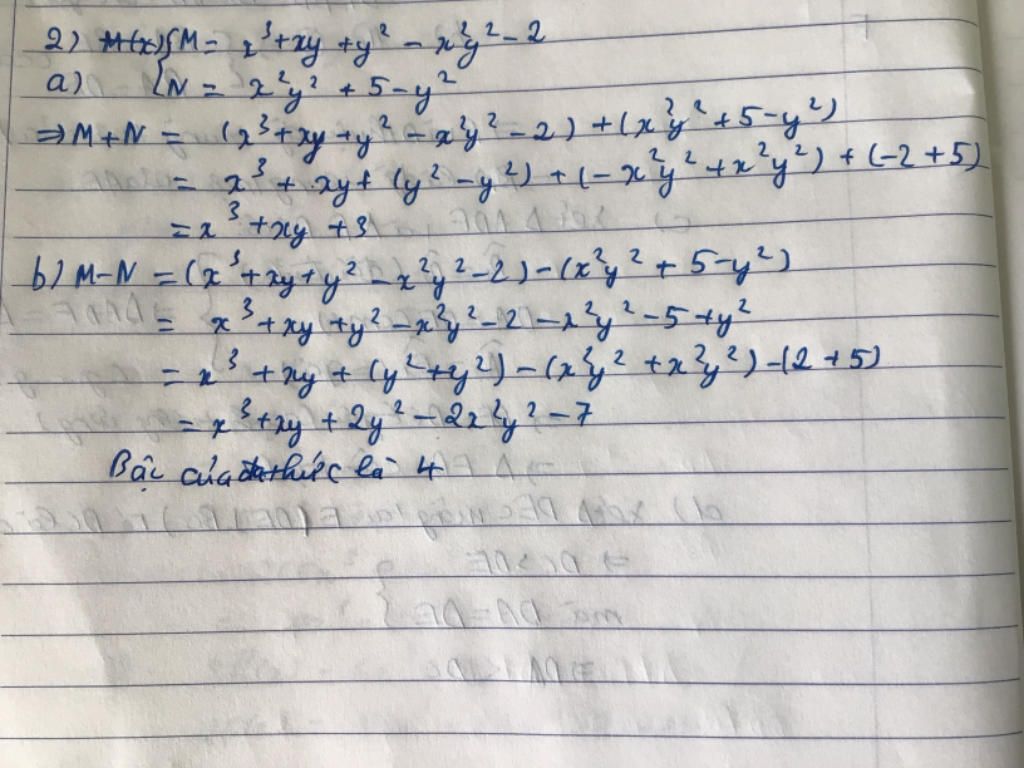 2) M(x) { M = x³ + xy + y² - x²y² - 2
a) { N = x²y² + 5 - y²
⇒ M + N = (x³ + xy + y² - x²y² - 2) + (x²y² + 5 - y²)
= x³ + xy + (y² - y²) + (-x²y² + x²y²) + (-2 + 5)
= x³ + xy + 3
b) M - N = (x³ + xy + y² - x²y² - 2) - (x²y² + 5 - y²)
= x³ + xy + y² - x²y² - 2 - x²y² - 5 + y²
= x³ + xy + (y² + y²) - (x²y² + x²y²) - (2 + 5)
= x³ + xy + 2y² - 2x²y² - 7
Bậc của đa thức là 4